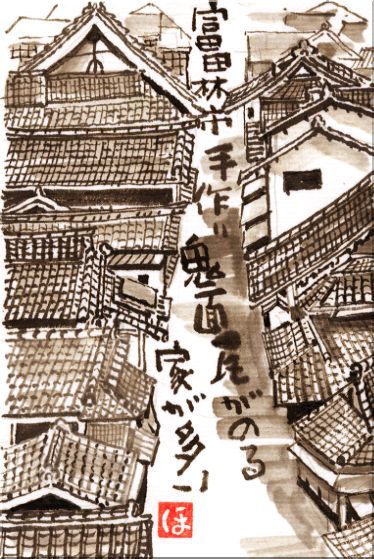 富田林市
手作り
鬼面瓦がのる
家が多い
ほ